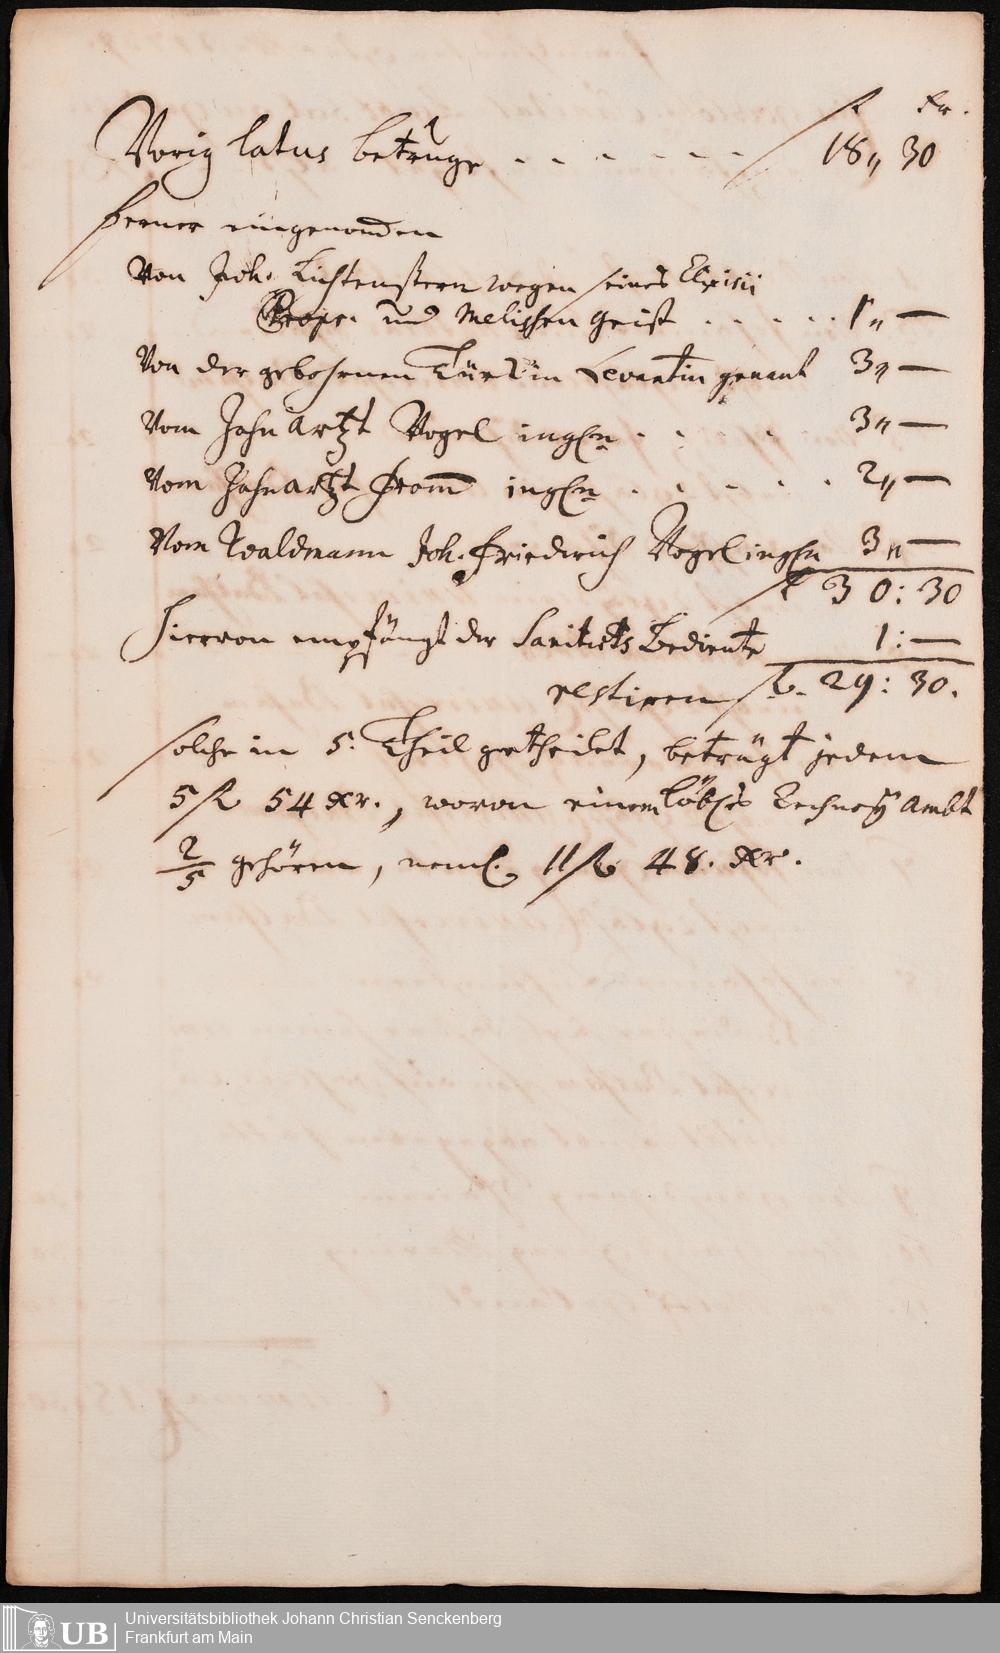 fl xr.
Vorig latus betruge . . . . . . . 18,, 30
ferner eingenommen
Von Joh. Lichtenstern wegen seines Elixirii
Propr. und Melissen Geist . . . . . 1,, —
Von der gebohrnen Türckin Levantin genant 3,, —
Vom Zahn Artzt Vogel ingln . . . . 3,, —
Vom Zahnartzt Fromm ingln . . . . . 2,, —
Vom Waldmann Joh. Friedrich Vogel ingln 3,, —
fl 30: 30
Hiervon empfängt der Sanitæts Bediente 1: —
restiren fl. 29: 30.
solche in 5. Theil getheilet, beträgt jedem
5 fl 54 xr., wovon einem löbl. Rechney Ambt
2/5 gehören, neml. 11 fl. 48. xr.
UB
Universitätsbibliothek Johann Christian Senckenberg
Frankfurt am Main